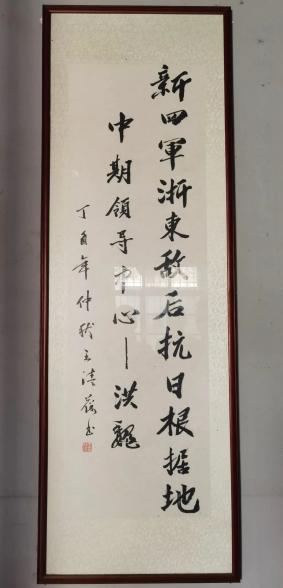 新四軍浙東敌后抗日根据地
中期領导中心—洪魏
丁酉年仲秋王清